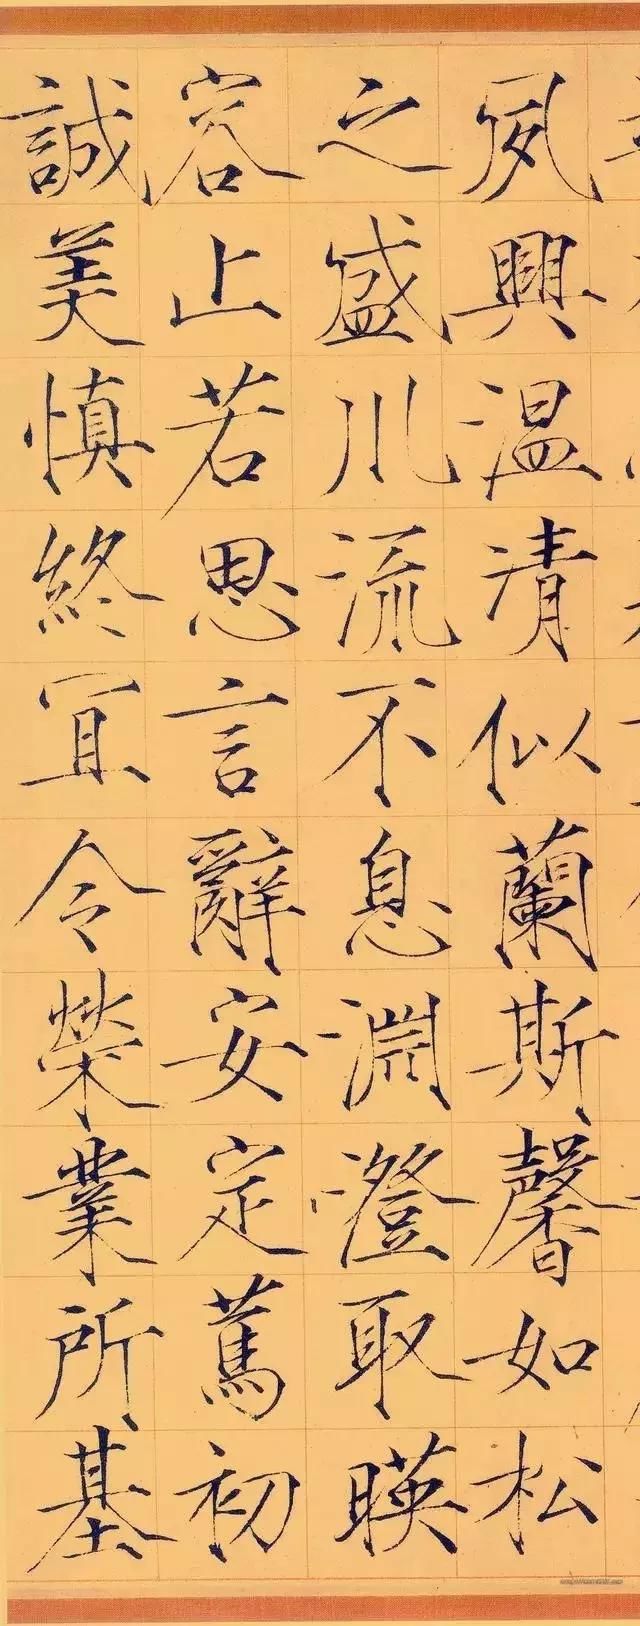 夙興温清似蘭斯馨如松
之盛川流不息淵澄取暎
容止若思言辭安定篤初
誠美慎終宜令榮業所基